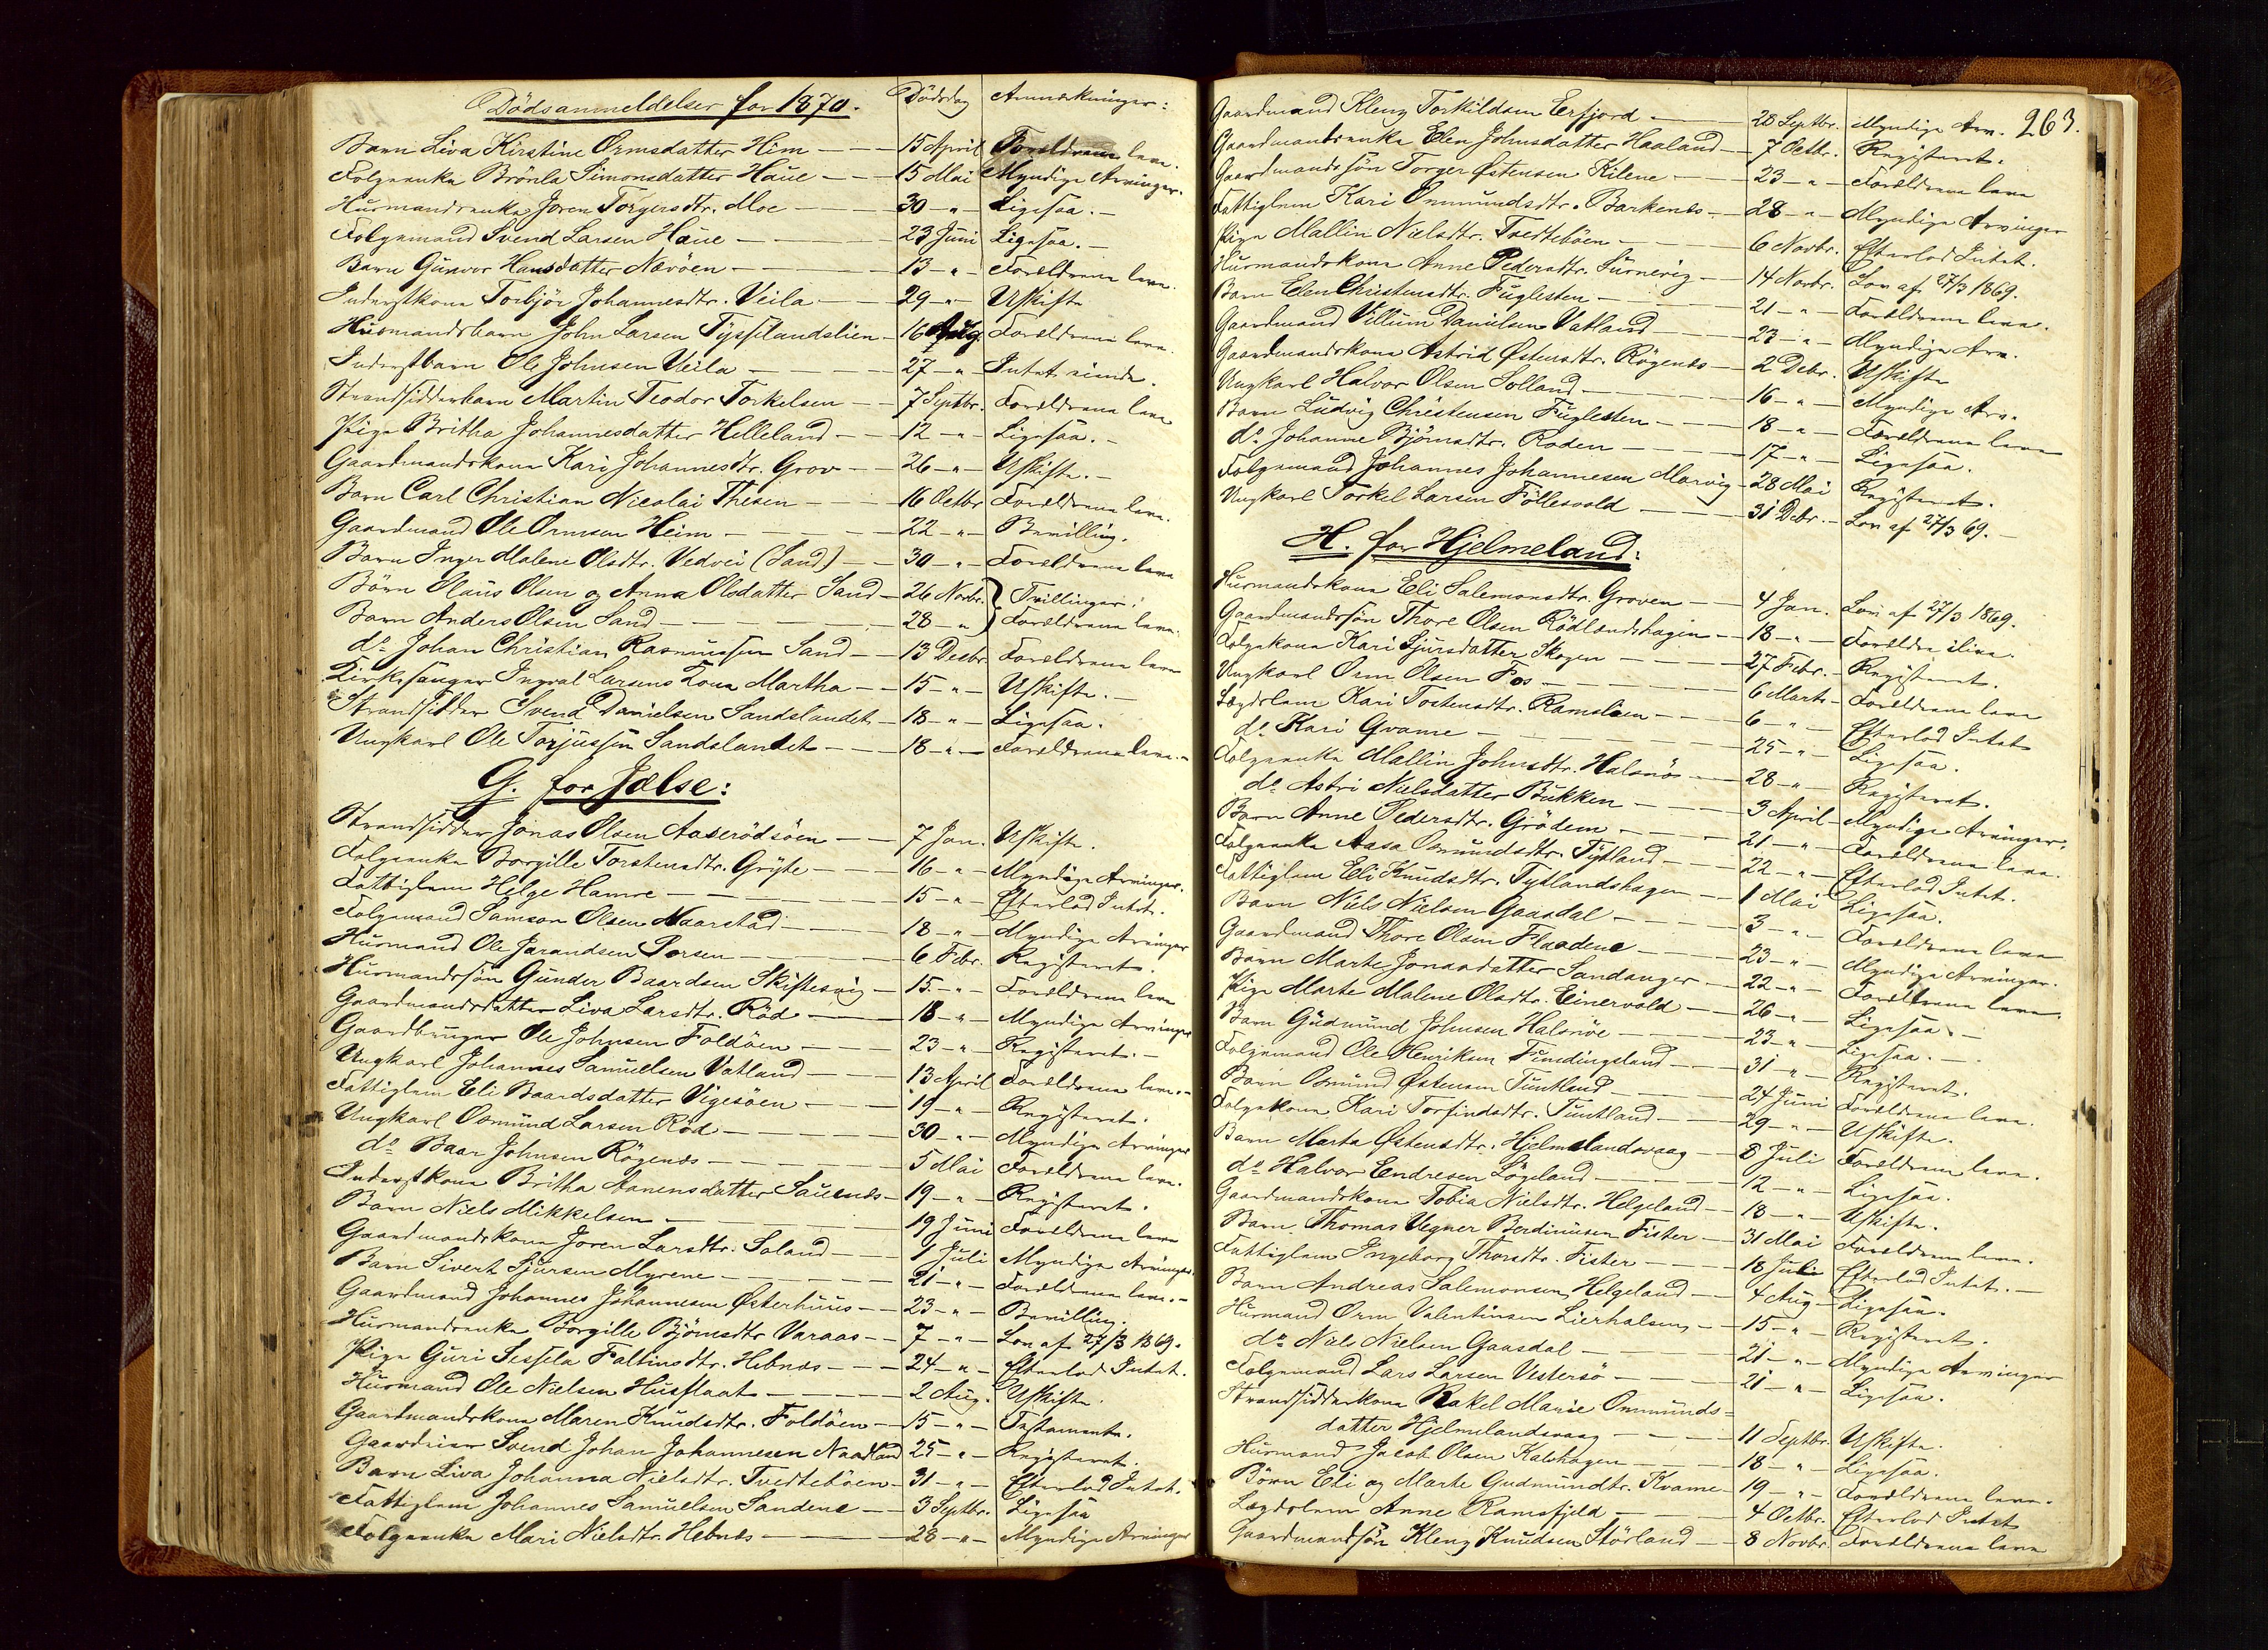 Dödsanmeldelser for 1870. Dödsdag Anmærkninger:
Barn Liva Kirstine Ormsdatter Him — 15 April Forældrene leve.
Folgeenke Brönla Simonsdatter Haue — 15 Mai Myndige Arvinger.
Husmandsenke Joren Torgersdtr. Moe — 30 — " Ligesaa. —
Folgemand Svend Larsen Haue — 23 Juni Ligesaa. —
Barn Gunvor Hansdatter Nævöen — 13 — " Forældrene leve.
Inderstkone Torbjör Johannesdtr. Veila — 29 — " Uskifte
Husmandsbarn John Larsen Tysslandslien — 16 Aug. Forældrene leve.
Inderstbarn Ole Johnsen Veila — 27 — " Intet eiende.
Strandsidderbarn Martin Teodor Torkelsen — 7 Septbr. Forældrene leve
Pige Britha Johannesdatter Helleland — 12 — " Ligesaa. —
Gaardmandskone Kari Johannesdtr. Grov — 26 — " Uskifte. —
Barn Carl Christian Nicolai Thesen — 16 Octbr Forældrene leve.
Gaardmand Ole Ormson Heim — 22 — " Bevilling.
Barn Inger Malene Olsdtr. Vedvei (Sand) — 30 — " Forældrene leve
Börn Olaus Olsen og Anna Olsdatter Sand — 26 Novbr. } Tvillinger.
Barn Anders Olsen Sand — 28 — " } Forældrene leve.
do Johan Christian Rasmussen Sand — 13 Decbr. Forældrene leve
Kirkesanger Ingval Larsens Kone Martha — 15 — " Uskifte. —
Strandsidder Svend Danielsen Sandslandet — 18 — " Ligesaa.
Ungkarl Ole Torjussen Sandslandet — 18 — " Forældrene leve. —
G. for Jælse:
Strandsidder Jonas Olsen Aaserödsöen — 7 Jan. Uskifte.
Folgeenke Borgille Torstensdtr. Gryte — 16 — " Myndige Arvinger.
Fattiglem Helge Hamre — 15 — " Efterlod Intet.
Folgemand Samson Olsen Naarstad — 18 — " Myndige Arvinger
Husmand Ole Jarandsen Sorsen — 6 Febr. Registeret.
Husmandssön Gunder Baardsen Skiftesvig — 15 — " Forældrene leve
Gaardmandsdatter Liva Larsdtr. Röd — 18 — " Myndige Arvinger
Gaardbruger Ole Johnsen Foldöen — 23 — " Registeret. —
Ungkarl Johannes Samuelsen Vatland — 13 April Forældrene leve. —
Fattiglem Eli Baardsdatter Vigesöen — 19 — " Registeret.
Ungkarl Osmund Larsen Röd — 30 — " Myndige Arvinger
do Baar Johnsen Rögenæs — 5 Mai Forældrene leve.
Inderstkone Britha Aanensdatter Sauenæs — 19 — " Registeret.
Barn Niels Mikkelsen — 19 Juni Forældrene leve
Gaardmandskone Joren Larsdtr. Soland — 1 Juli Myndige Arvinger.
Barn Sivert Sjursen Myrene — 21 — " Forældrene leve. —
Gaardmand Johannes Johannesen Østerhuus — 23 — " Bevilling.
Husmandsenke Borgille Björnsdtr Varaas — 7 — " Lov af 27/3 1869.
Pige Guri Sessela Faltinsdtr. Hebnæs — 24 — " Efterlod Intet.
Husmand Ole Nielsen Husflaat — 2 Aug. Uskifte.
Gaardmandskone Maren Knudsdtr. Foldöen — 15 — " Testamente.
Gaardeier Svend Johan Johannesen Naadland 25 — " Registeret.
Barn Liva Johanna Nielsdtr. Tvedteböen — 31 — " Efterlod Intet.
Fattiglem Johannes Samuelsen Sandene — 3 Septbr. Ligesaa
Folgeenke Mari Nielsdtr. Hebnæs — 28 — " Myndige Arvinger
263.
Gaardmand Kleng Torkildsen Erfjord — 28 Septbr. Myndige Arv.
Gaardmandsenke Elen Johnsdatter Haaland — 7 Octbr. Registeret.
Gaardmandssön Torger Østensen Kilene — 23 — " — Forældrene leve
Fattiglem Kari Ommundsdtr. Barkenæs — 28 — " — Myndige Arvinger
Pige Mallin Nielsdtr. Tvedteböen — 6 Novbr. Efterlod Intet.
Husmandskone Anne Pedersdtr. Surnevig — 14 Novbr. Lov af 27/3 1869.
Barn Elen Christensdtr. Fuglesten — 21 — " — Forældrene leve.
Gaardmand Villum Danielsen Vatland — 23 — " — Myndige Arv.
Gaardmandskone Astrid Østensdtr. Rögenæs — 2 Debr. Uskifte
Ungkarl Halvor Olsen Solland — 16 — " — Myndige Arv.
Barn Ludvig Christensen Fuglesten — 18 — " — Forældrene leve
do Johanne Björnsdtr. Roden — 17 — " — Ligesaa.
Folgemand Johannes Johannesen Marvig — 28 Mai Registeret.
Ungkarl Torkel Larsen Föllesvold — 31 Debr. — Lov af 27/3 69. —
H. for Hjelmeland:
Husmandskone Eli Salemonsdtr. Groven — 4 Jan. Lov af 27/3 1869.
Gaardmandssön Thore Olsen Rödlandshagen — 18 — " — Forældre ilive.
Folgekone Kari Sjursdatter Skogen — 27 Febr. — Registeret.
Ungkarl Orm Olsen Fos — 6 Marts — Forældrene leve
Lægdslem Kari Tostensdtr. Ramslien — 6 — " — Efterlod Intet
do Kari Qvame — 25 — " — Ligesaa.
Folgeenke Mallin Johnsdtr. Halsnös — 28 — " — Registeret.
do Astri Nielsdatter Bukken — 3 April — Myndige Arvinger.
Barn Anne Pedersdtr. Grödem — 21 — " — Forældrene leve.
Folgeenke Aasa Osmundsdtr. Tytland — 22 — " — Efterlod Intet.
Fattiglem Eli Knudsdtr. Tytlandshagen — 1 Mai Ligesaa.
Barn Niels Nielsen Gaasdal — 3 — " — Forældrene leve
Gaardmand Thore Olsen Fladene — 23 — " — Myndige Arvinger.
Barn Marte Jonasdatter Sandanger — 22 — " — Forældrene leve.
Pige Marte Malene Olsdtr. Einervold — 26 — " — Ligesaa —
Barn Gudmund Johnsen Halsnöe — 23 — " — Ligesaa. —
Folgemand Ole Henriksen Fundingsland — 31 — " — Registeret.
Barn Osmund Østensen Tuntland — 24 Juni Forældrene leve.
Folgekone Kari Torfindsdtr. Tuntland — 29 — " — Uskifte.
Barn Marta Østensdtr. Hjelmelandsvaag — 8 Juli Forældrene leve.
do Halvor Endresen Lögeland — 12 — " — Ligesaa.
Gaardmandskone Tobia Nielsdtr. Helgeland — 18 — " — Uskifte.
Barn Thomas Vegner Berdinusen Fister — 31 Mai Forældrene leve.
Fattiglem Ingeborg Thorsdtr. Fister — 18 Juli Efterlod Intet. —
Barn Andreas Salemonsen Helgeland — 4 Aug — Ligesaa.
Husmand Orm Valentinsen Lierhalsen — 15 — " — Registeret.
do Niels Nielsen Gaasdal — 21 — " — Myndige Arvinger
Folgemand Lars Larsen Vestersö — 21 — " — Ligesaa.
Strandsidderkone Rakel Marie Ommunds=
datter Hjelmelandsvaag — 11 Septbr. Uskifte.
Husmand Jacob Olsen Kalvhagen — 18 — " — Ligesaa.
Börn Eli og Marte Gudmundtr. Kvame — 19 — " — Forældrene leve.
Lægdslem Anne Ramsfjeld — 4 Octbr. Efterlod Intet
Gaardmandssön Kleng Knudsen Störland — 8 Novbr. Forældrene leve